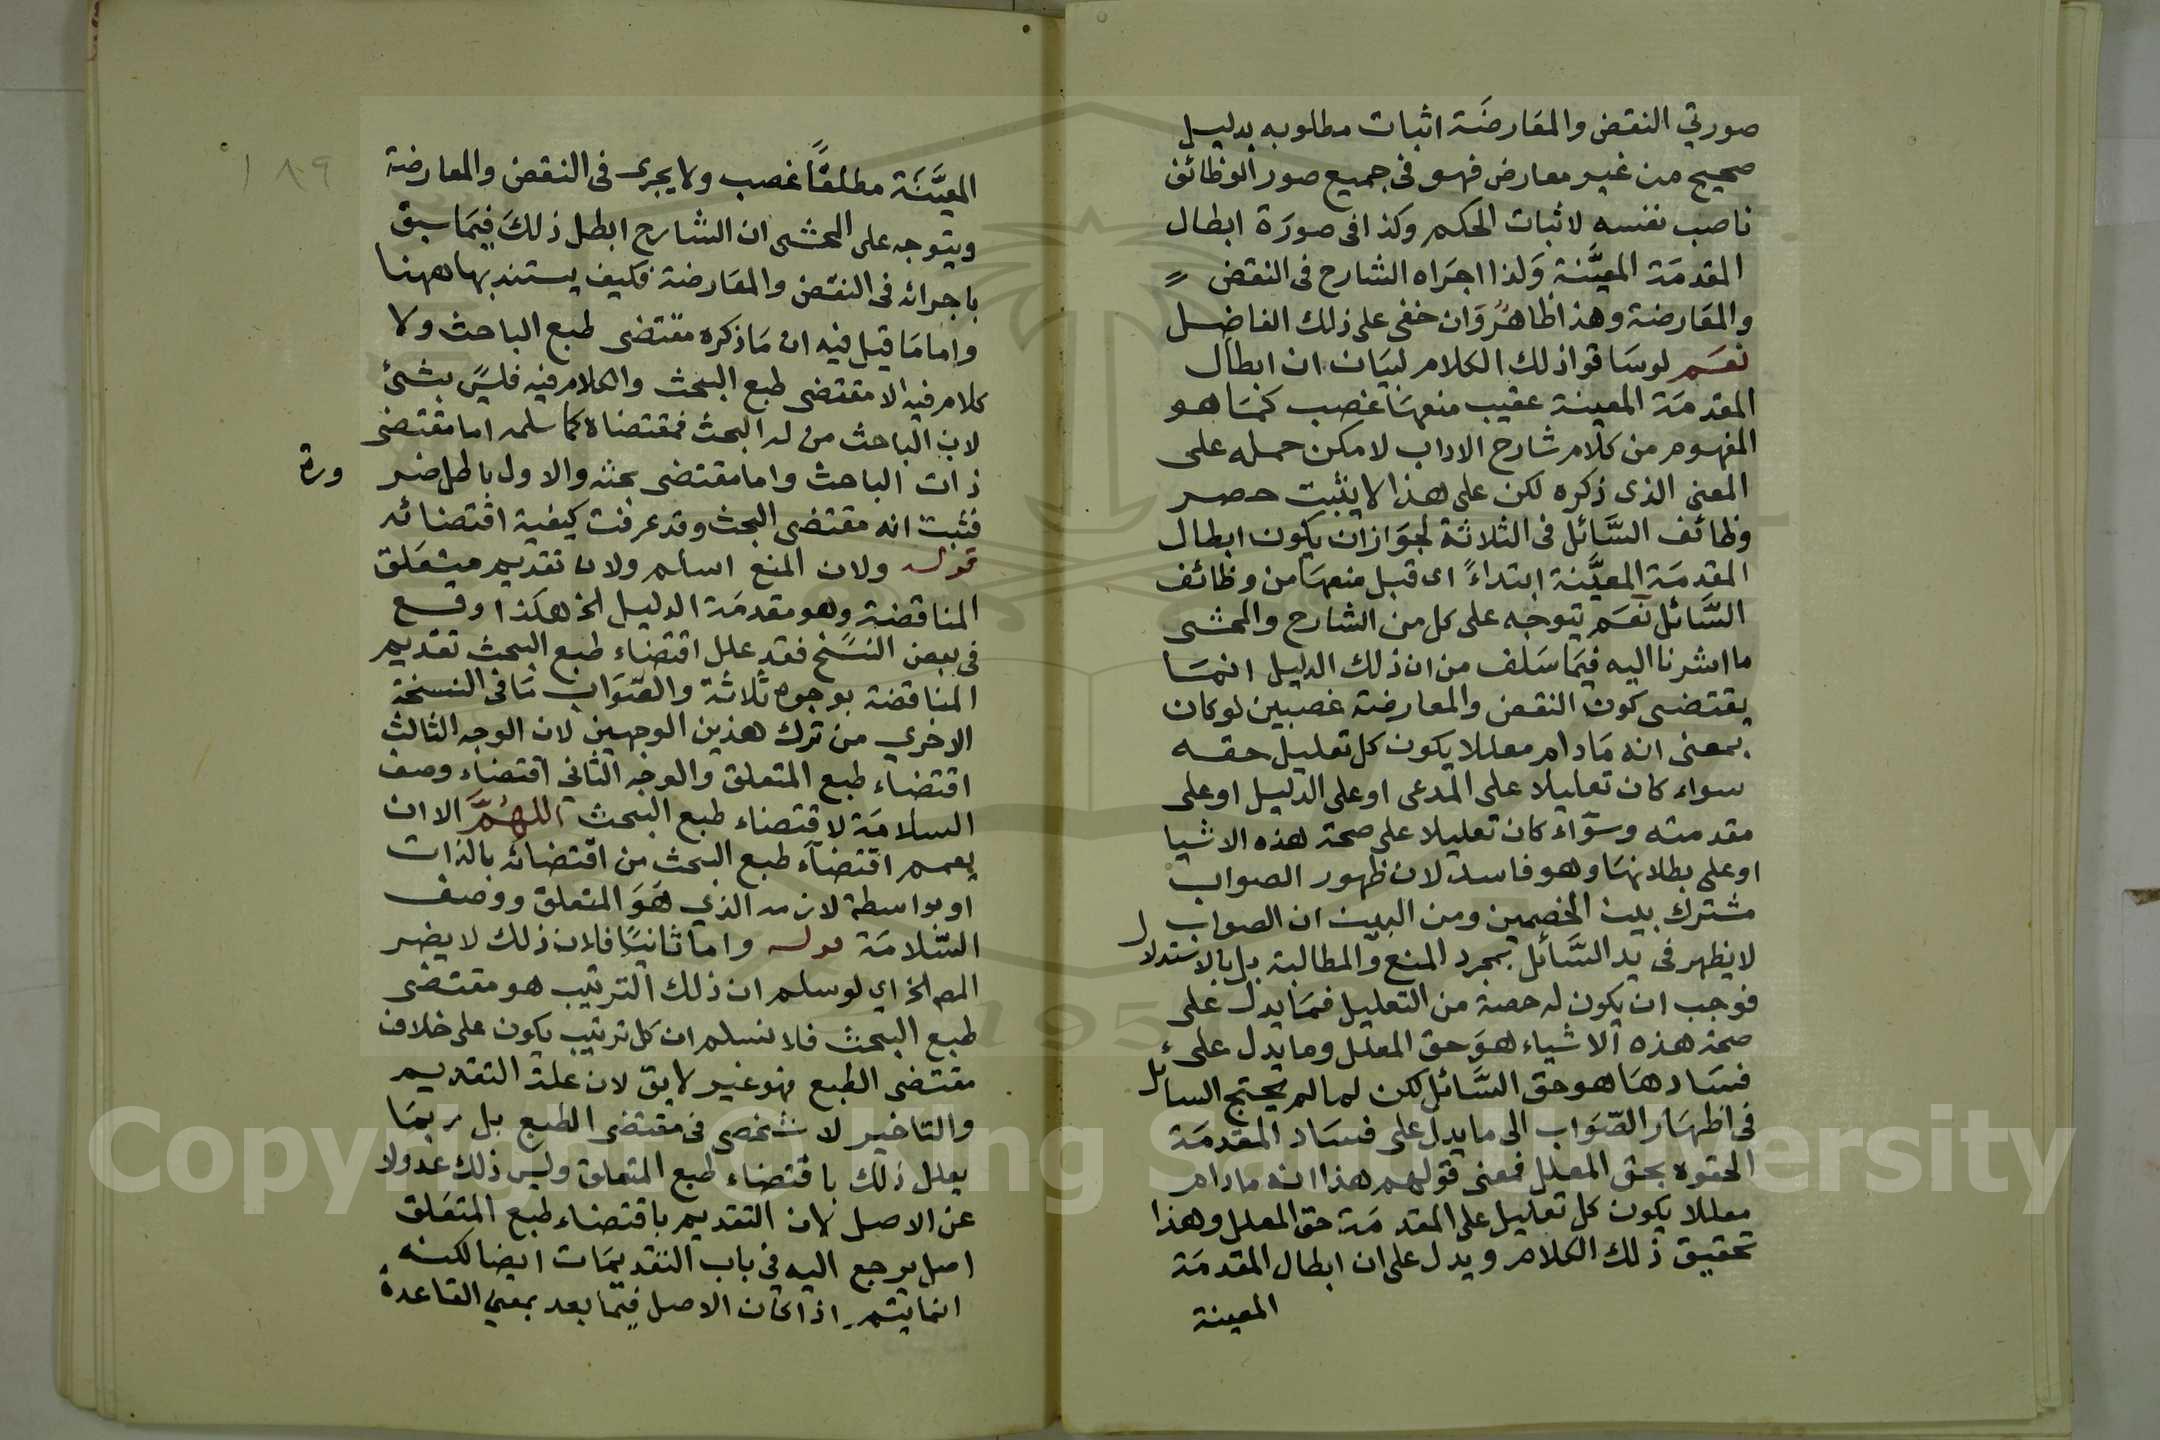 صورتي النقض والمعارضَة اثبات مطلوبه بدليل
صحيح من غير معارض فهو في جميع صور الوظائف
ناصب نفسه لاثبات الحكم وكذا في صورَة ابطال
المقدمَة المعيَّنة وَلذا اجرَاه الشارح في النقض
والمعَارضة وهذا ظاهرٌ وَان خفى على ذلك الفاضِل
نعَم لوسَاقوا ذلك الكلام لبيَان ان ابطال
المقدمَة المعينة عقيب منعهَا غصب كمَا هو
المفهوم من كلام شارح الاداب لامكن حمله على
المعنى الذى ذكره لكن على هذا لا يثبت حصر
وظائف السَّائل في الثلاثة لجوَاز ان يكون ابطال
المقدمَة المعيَّنة ابتداءً اى قبل منعهَا من وظائف
السَّائل نعَم يتوجه على كل من الشارح والمحشى
ما اشرنا اليه فيمَا سَلف من ان ذلك الدليل انمَا
يقتضى كون النقض والمعارضة غصبين لو كان
بمعنى انه مَادام معللا يكون كل تعليل حقه
سواء كان تعليلا على المدعى او على الدليل او على
مقدمته وسوَآء كان تعليلا على صحة هذه الاشيا
او على بطلانهَا وهو فاسد لان ظهور الصواب
مشترك بين الخصمين ومن البين ان الصواب
لا يظهر في يد السَّائل بمجرد المنع والمطالبة بل بالاستدلال
فوجب ان يكون له حصة من التعليل فمَا يدل على
صحة هذه الاشياء هوَ حق المعلل وما يدل على
فسَادهَا هو حق السَّائل لكن لما لم يحتج السائل
في اظهَار الصّوَاب الى ما يدل على فسَاد المقدمَة
الحقوه بحق المعلل فمعنى قولهم هذا انه مادام
معللا يكون كل تعليل على المقدمَة حق المعلل وهذا
تحقيق ذلك الكلام ويدل على ان ابطال المقدمَة
المعينة
١٨٩
المعيَّنَة مطلقاً غصب ولا يجرى في النقض والمعارضة
ويتوجه على المحشى ان الشارح ابطل ذلكَ فيمَا سبق
باجرائه في النقض والمعَارضة فكيف يستند بها ههنا
واما مَا قيل فيه ان مَا ذكره مقتضى طبع الباحث ولا
كلام فيه الا مقتضى طبع البحث والكلام فيه فليسَ بشئ
لان الباحث من له البحث فمقتضاه كما سلمه اما مقتضى
ذات الباحث واما مقتضى بحثه والاول باطل ضر
ورة
فثبت انه مقتضى البحث وقد عرفت كيفية اقتضائه
قوله ولان المنع اسلم ولان تقديم متعَلق
المناقضة وهو مقدمَة الدليل الخ هكذا وقع
في بعض النسَخ فقد علل اقتضاء طبع البحث تقديم
المناقضة بوجوه ثلاثة والصّوَاب مَا في النسخة
الاخرى من ترك هذين الوجهين لان الوجه الثالث
اقتضاء طبع المتعلق والوجه الثاني اقتضاء وصف
السلامَة لا قتضاء طبع البحث اللهُمَّ الا ان
يعمم اقتضآء طبع البحث من اقتضائه بالذات
او بواسطة لازمه الذي هَوَ المتعلق ووصف
السّلامَة قوله واما ثانيًا فلان ذلك لا يضر
المص الخ اي لو سلم ان ذلك الترتيب هو مقتضى
طبع البحث فلا نسلم ان كل ترتيب يكون على خلاف
مقتضى الطبع فهو غير لايق لان علة التقديم
والتاخير لا تنحصر في مقتضى الطبع بل ربمَا
يعلل ذلك باقتضاء طبع المتعلق وليس ذلك عدولا
عن الاصل لان التقديم باقتضاء طبع المتعَلق
اصل يرجع اليه في باب التقديمَات ايضا لكنه
انما يتم اذا كان الاصل فيمَا بعد بمعنى القاعدة